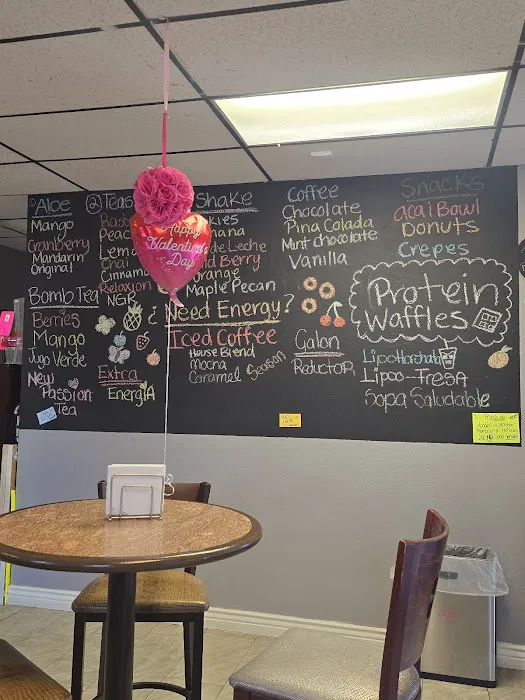 Aloe
Mango
Cranberry
Mandarin
Original
Bomb Tea
Berries
Mango
Jugo Verde
New
Passion
Tea
@Teas
Peac
Lem
Chai
Cinnam
Relaxion
NGR
Extra
EnergiA
Happy
Valentine's
Day
Shake
kies
nana
de Leche
d Berry
orange
Maple Pecan
¿Need Energy?
Iced Coffee
House Blend
Mocha
Caramel
Season
Coffee
Chocolate
Pina Colada
Mint chocolate
Vanilla
Galon
Reductor
Snacks
acai Bowl
Donuts
Crepes
Protein
Waffles
Lipo Horchata
Lipoo-Fresa
Sopa Saludable